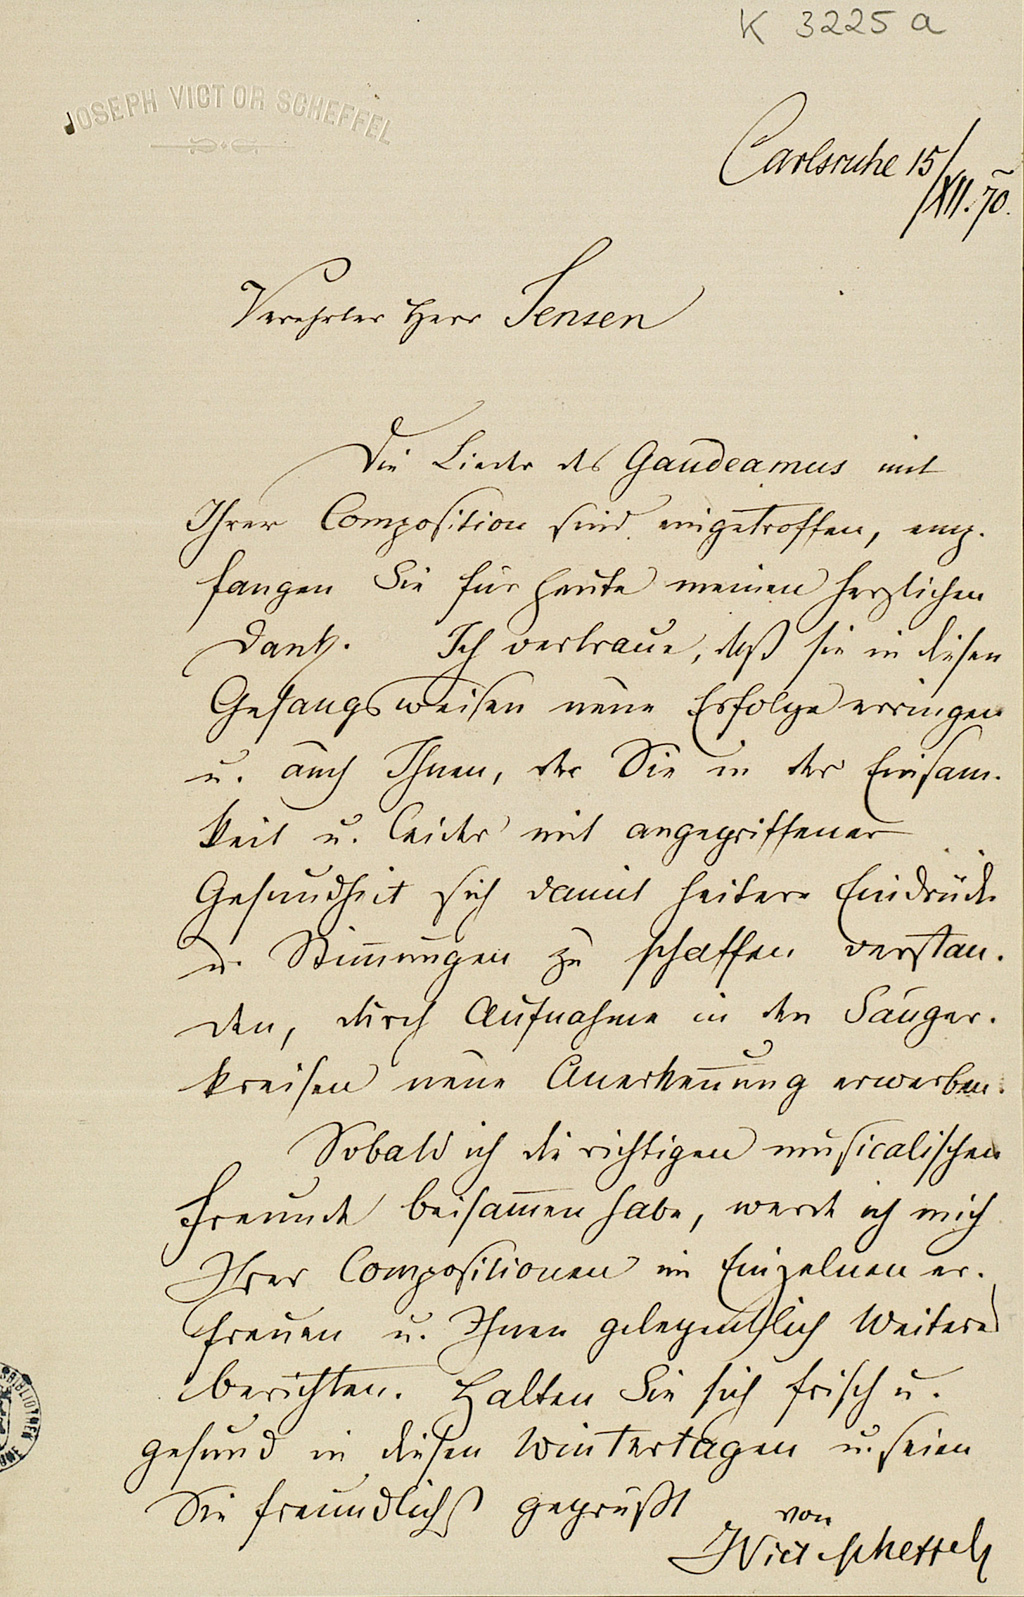 K 3225 a
JOSEPH VICTOR SCHEFFEL
Carlsruhe 15/XII. 70.
Verehrter Herr Jensen
Die Lieder des Gaudeamus mit
Ihrer Composition sind eingetroffen, emp-
fangen Sie für heute meinen herzlichen
Dank. Ich vertraue, daß sie in diesen
Gesangsweisen neue Erfolge erringen
u. auch Ihnen, der Sie in der Einsam-
keit u. leider mit angegriffener
Gesundheit sich damit heitere Eindrücke
u. Stim̅ungen zu schaffen verstan-
den, durch Aufnahme in den Sänger-
kreisen neue Anerken̅ung erwerben.
Sobald ich die richtigen musicalischen
Freunde beisam̅en habe, werde ich mich
Ihrer Compositionen im Einzelnen er-
freuen u. Ihnen gelegentlich Weiteres
berichten. Halten Sie sich frisch u.
gesund in diesen Wintertagen u. seien
Sie freundlichst gegrüßt
von
J Vict Scheffel
BIBLIOTHEK